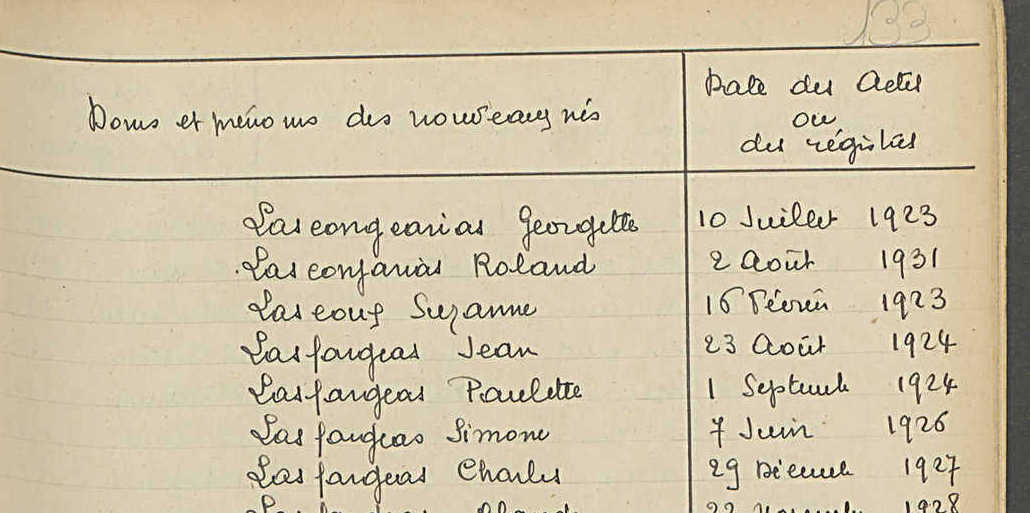 133
Noms et prénoms des nouveaux nés
Date des Actes
ou
des régistres
Lascongearias Georgette 10 Juillet 1923
Lasconjarias Roland 2 Août 1931
Lascoux Suzanne 16 Février 1923
Lasfargeas Jean 23 Août 1924
Lasfargeas Paulette 1 Septemb 1924
Lasfargeas Simone 7 Juin 1926
Lasfargeas Charles 29 Décemb 1927
22 1928